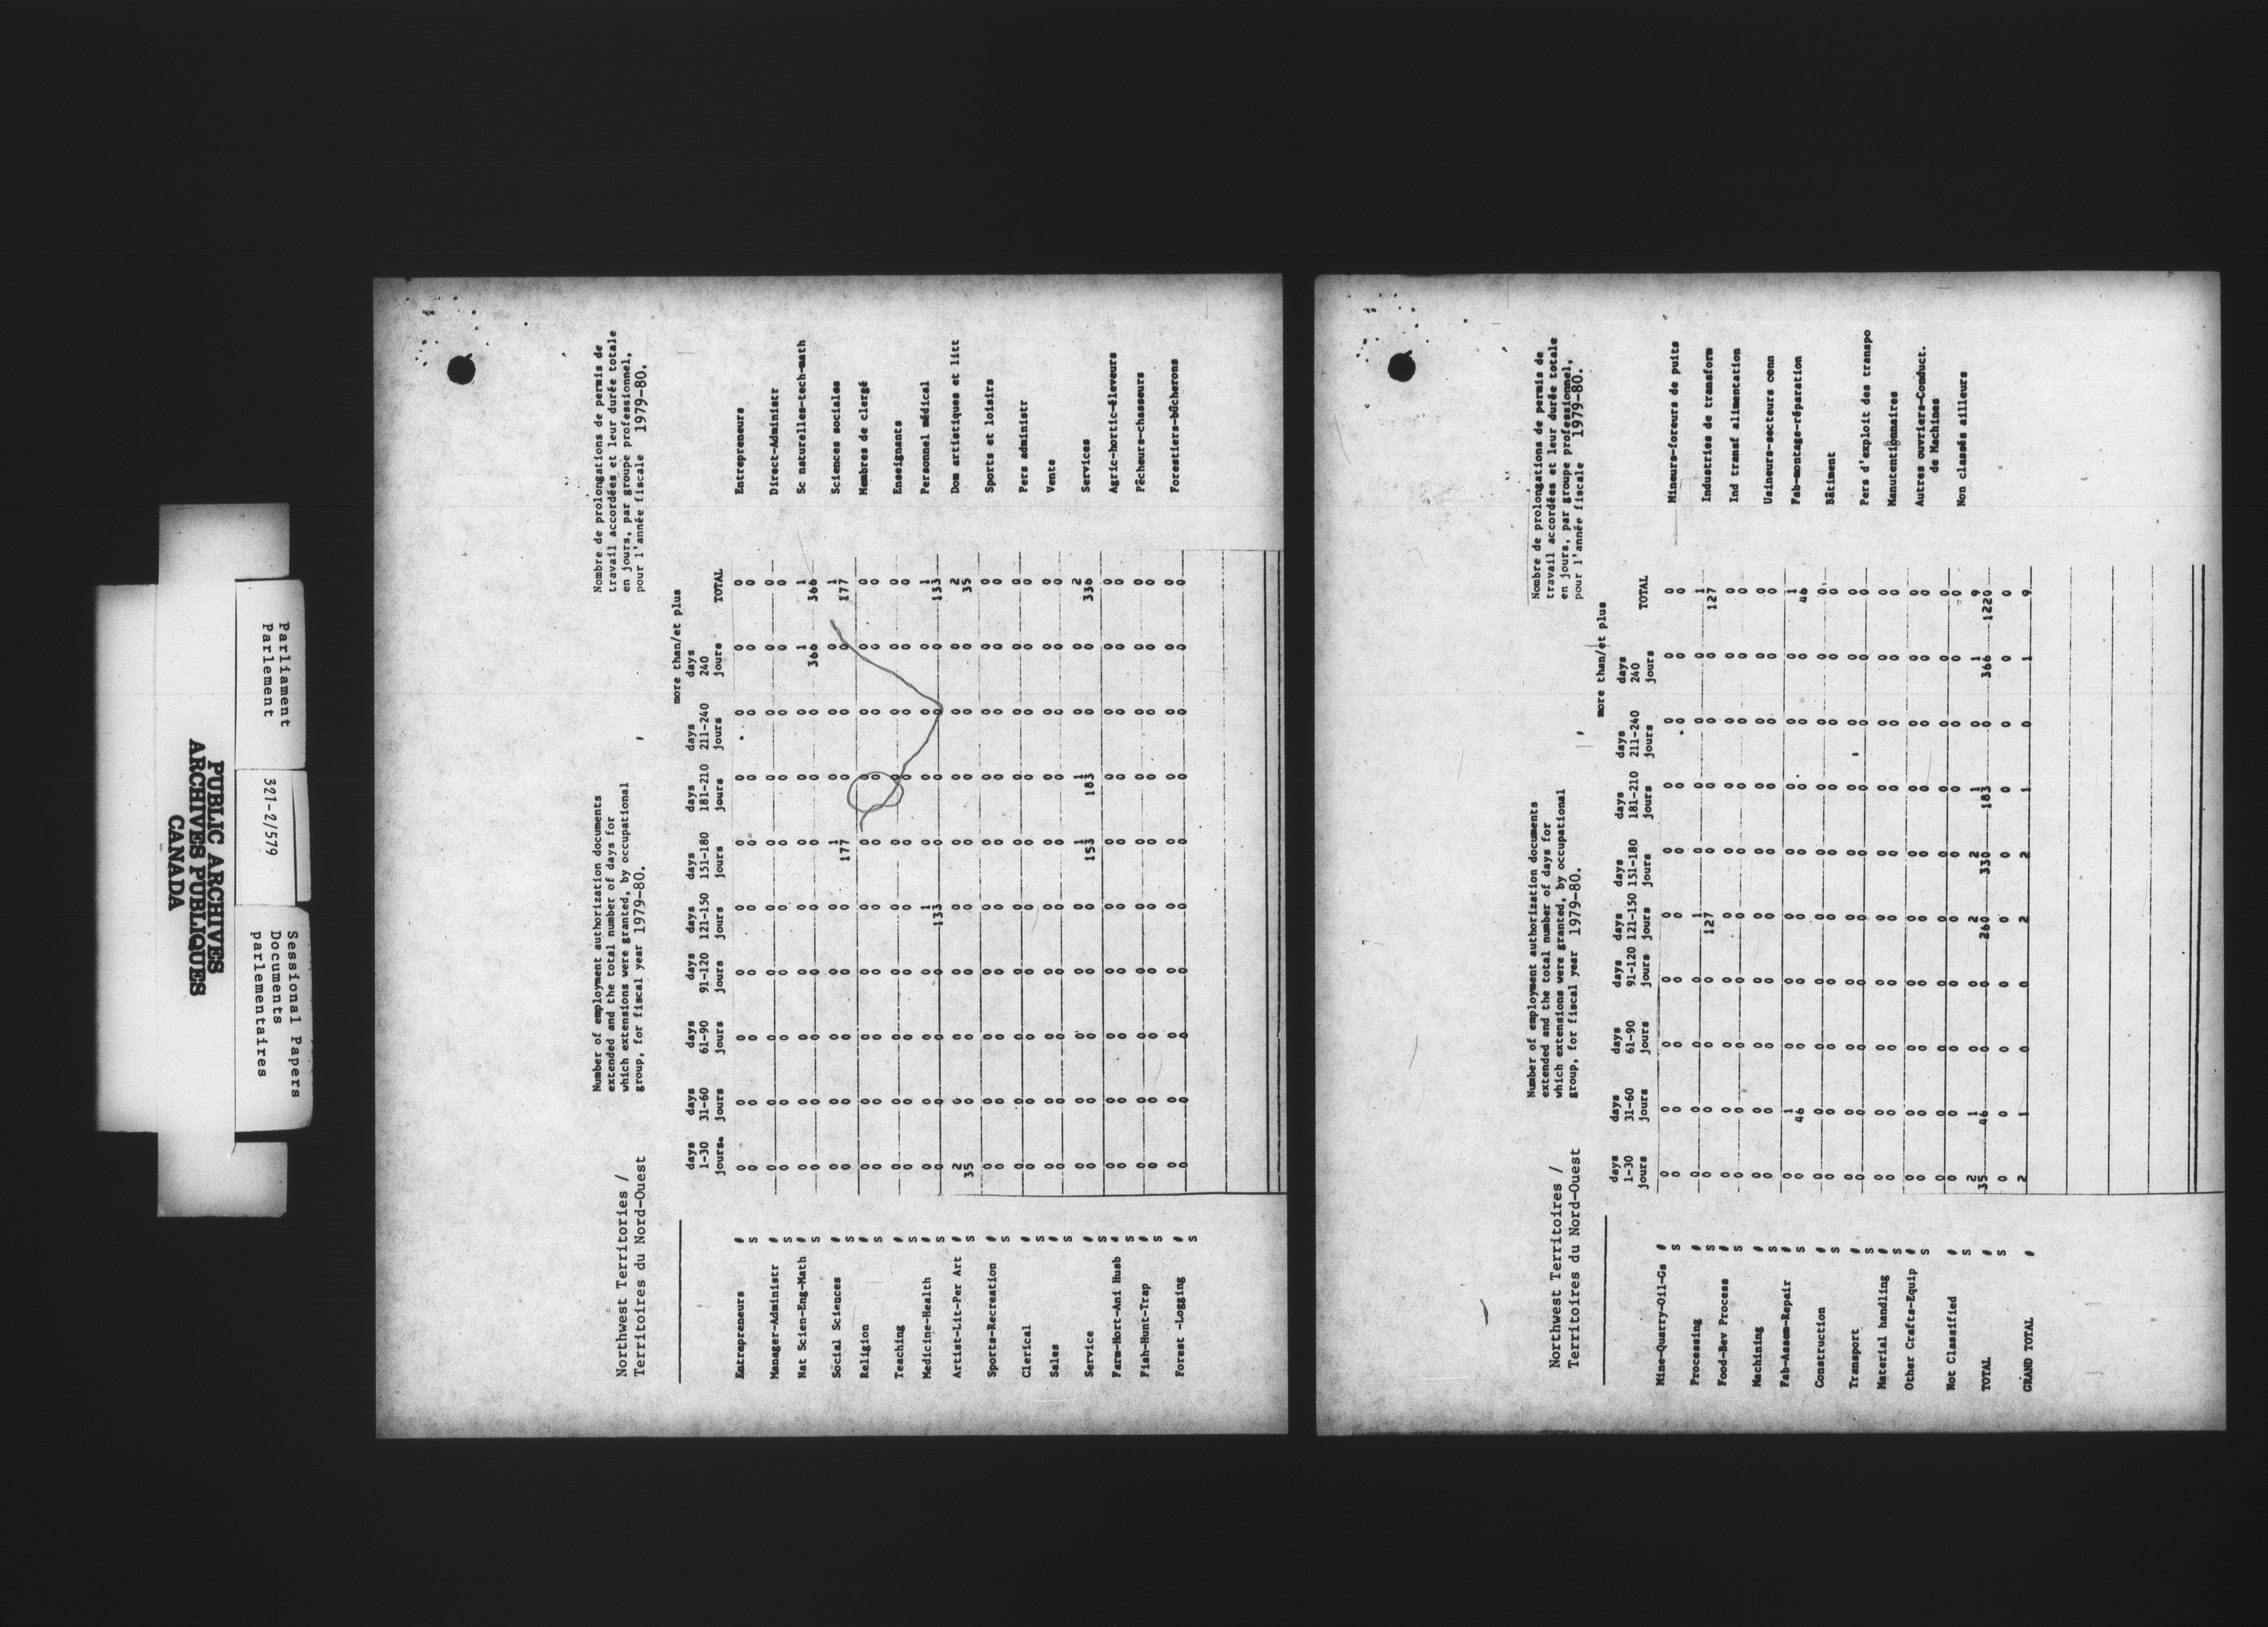 PUBLIC ARCHIVES
ARCHIVES PUBLIQUES
CANADA
Parliament
Parlement
321-2/579
Sessional Papers
Documents
parlementaires
Northwest Territories /
Territoires du Nord-Ouest
Number of employment authorization documents
extended and the total number of days for
which extensions were granted, by occupational
group, for fiscal year 1979-80.
Nombre de prolongations de permis de
travail accordées et leur durée totale
en jours, par groupe professionnel,
pour l'année fiscale 1979-80.
more than/et plus
days days days days days days days days days
1-30 31-60 61-90 91-120 121-150 151-180 181-210 211-240 240 TOTAL
jours jours jours jours jours jours jours jours jours
Entrepreneurs # 0 0 0 0 0 0 0 0 0 0 Entrepreneurs
S 0 0 0 0 0 0 0 0 0 0
Manager-Administr # 0 0 0 0 0 0 0 0 0 0 Direct-Administr
S 0 0 0 0 0 0 0 0 0 0
Nat Scien-Eng-Math # 0 0 0 0 0 0 0 0 1 1 Sc naturelles-tech-math
S 0 0 0 0 0 0 0 0 366 366
Social Sciences # 0 0 0 0 0 1 0 0 0 1 Sciences sociales
S 0 0 0 0 0 177 0 0 0 177
Religion # 0 0 0 0 0 0 0 0 0 0 Membres de clergé
S 0 0 0 0 0 0 0 0 0 0
Teaching # 0 0 0 0 0 0 0 0 0 0 Enseignants
S 0 0 0 0 0 0 0 0 0 0
Medicine-Health # 0 0 0 0 1 0 0 0 0 1 Personnel médical
S 0 0 0 0 133 0 0 0 0 133
Artist-Lit-Per Art # 2 0 0 0 0 0 0 0 0 2 Dom artistiques et litt
S 35 0 0 0 0 0 0 0 0 35
Sports-Recreation # 0 0 0 0 0 0 0 0 0 0 Sports et loisirs
S 0 0 0 0 0 0 0 0 0 0
Clerical # 0 0 0 0 0 0 0 0 0 0 Pers administr
S 0 0 0 0 0 0 0 0 0 0
Sales # 0 0 0 0 0 0 0 0 0 0 Vente
S 0 0 0 0 0 0 0 0 0 0
Service # 0 0 0 0 0 1 1 0 0 2 Services
S 0 0 0 0 0 153 183 0 0 336
Farm-Hort-Ani Husb # 0 0 0 0 0 0 0 0 0 0 Agric-hortic-éleveurs
S 0 0 0 0 0 0 0 0 0 0
Fish-Hunt-Trap # 0 0 0 0 0 0 0 0 0 0 Pêcheurs-chasseurs
S 0 0 0 0 0 0 0 0 0 0
Forest -Logging # 0 0 0 0 0 0 0 0 0 0 Forestiers-bûcherons
S 0 0 0 0 0 0 0 0 0 0
Northwest Territoires /
Territoires du Nord-Ouest
Number of employment authorization documents
extended and the total number of days for
which extensions were granted, by occupational
group, for fiscal year 1979-80.
Nombre de prolongations de permis de
travail accordées et leur durée totale
en jours, par groupe professionnel,
pour l'année fiscale 1979-80.
more than/et plus
days days days days days days days days days
1-30 31-60 61-90 91-120 121-150 151-180 181-210 211-240 240 TOTAL
jours jours jours jours jours jours jours jours jours
Mine-Quarry-Oil-Gs # 0 0 0 0 0 0 0 0 0 0 Mineurs-foreurs de puits
S 0 0 0 0 0 0 0 0 0 0
Processing # 0 0 0 0 1 0 0 0 0 1 Industries de transform
S 0 0 0 0 127 0 0 0 0 127
Food-Bev Process # 0 0 0 0 0 0 0 0 0 0 Ind transf alimentation
S 0 0 0 0 0 0 0 0 0 0
Machining # 0 0 0 0 0 0 0 0 0 0 Usineurs-secteurs conn
S 0 0 0 0 0 0 0 0 0 0
Fab-Assem-Repair # 0 1 0 0 0 0 0 0 0 1 Fab-montage-réparation
S 0 46 0 0 0 0 0 0 0 46
Construction # 0 0 0 0 0 0 0 0 0 0 Bâtiment
S 0 0 0 0 0 0 0 0 0 0
Transport # 0 0 0 0 0 0 0 0 0 0 Pers d'exploit des transpo
S 0 0 0 0 0 0 0 0 0 0
Material handling # 0 0 0 0 0 0 0 0 0 0 Manutentionnaires
S 0 0 0 0 0 0 0 0 0 0
Other Crafts-Equip # 0 0 0 0 0 0 0 0 0 0 Autres ouvriers-Conduct.
S 0 0 0 0 0 0 0 0 0 0 de Machines
Not Classified # 0 0 0 0 0 0 0 0 0 0 Non classés ailleurs
S 0 0 0 0 0 0 0 0 0 0
TOTAL # 2 1 0 0 2 2 1 0 1 9
S 35 46 0 0 260 330 183 0 366 1220
0 0 0 0 0 0 0 0 0 0
GRAND TOTAL # 2 1 0 0 2 2 1 0 1 9